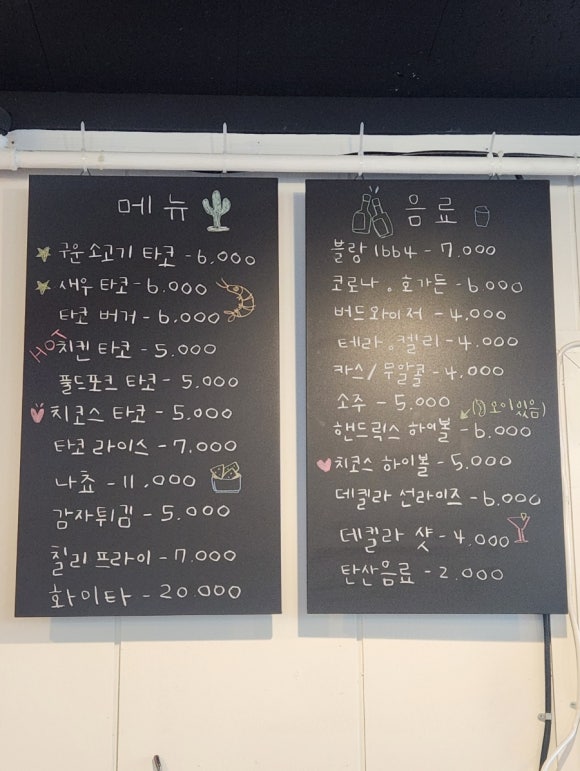 메뉴
구운 소고기 타코 - 6,000
새우 타코 - 6,000
타코 버거 - 6,000
HOT
치킨 타코 - 5,000
풀드포크 타코 - 5,000
치코스 타코 - 5,000
타코 라이스 - 7,000
나쵸 - 11,000
감자튀김 - 5,000
칠리 프라이 - 7,000
화이타 - 20,000
음료
블랑 1664 - 7,000
코로나 。호가든 - 6,000
버드와이저 - 4,000
테라 。켈리 - 4,000
카스/무알콜 - 4,000
소주 - 5,000
오이있음)
핸드릭스 하이볼 - 6,000
치코스 하이볼 - 5,000
데킬라 선라이즈 - 6,000
데킬라 샷 - 4,000
탄산음료 - 2,000